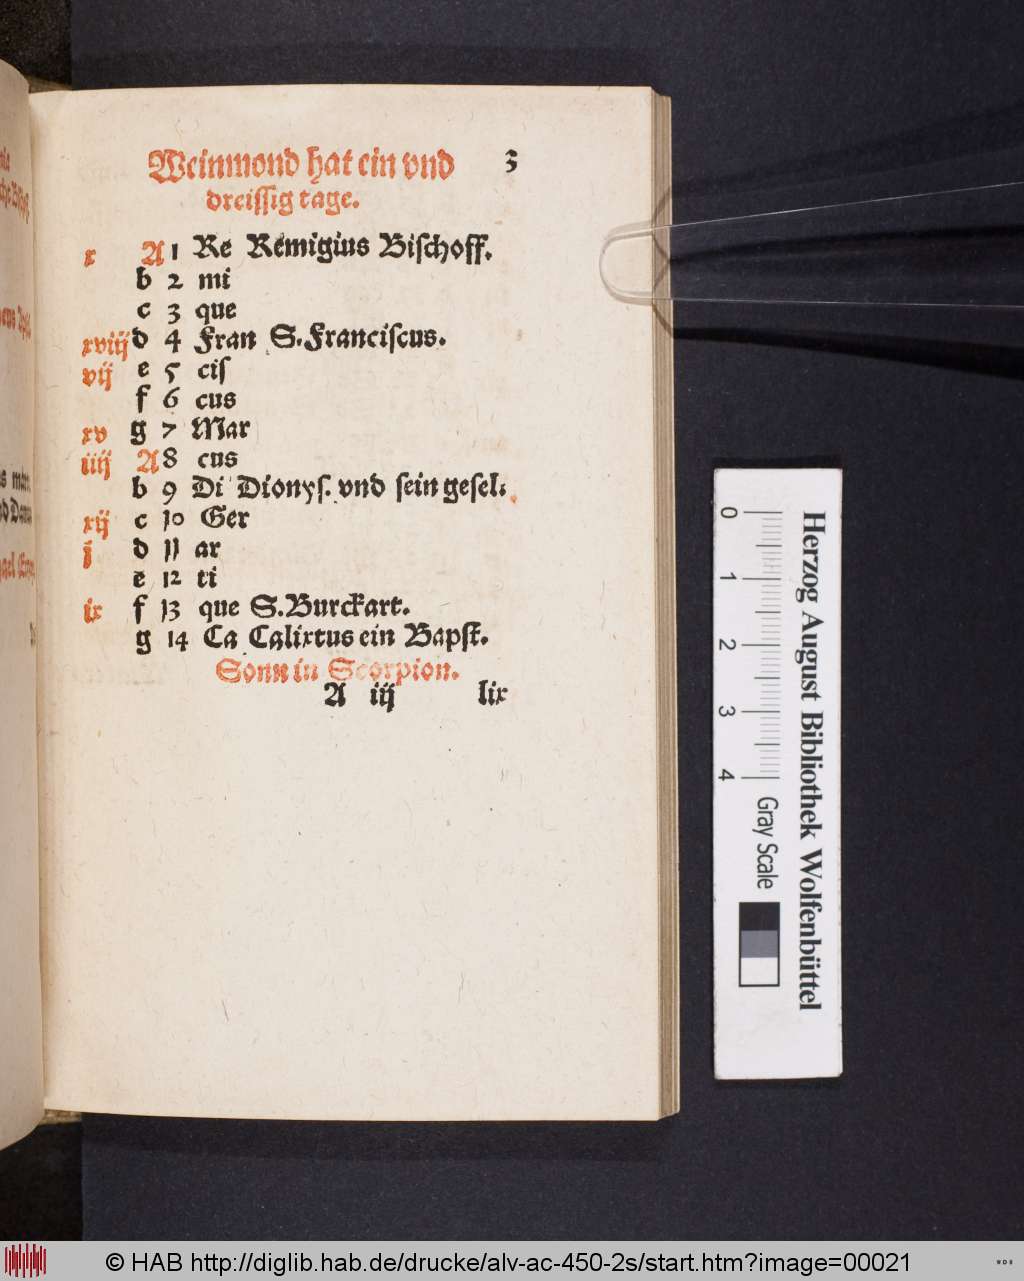 Weinmond hat ein vnd 3
dreissig tage.
x A 1 Re Remigius Bischoff.
b 2 mi
c 3 que
xviij d 4 Fran S. Franciscus.
vij e 5 cis
f 6 cus
xv g 7 Mar
iiij A 8 cus
b 9 Di Dionys. vnd sein gesel.
xij c 10 Ger
j d 11 ar
e 12 ti
ix f 13 que S. Burckart.
g 14 Ca Calixtus ein Bapst.
Sonn in Scorpion.
A iij lix
Herzog August Bibliothek Wolfenbüttel
0 1 2 3 4 Gray Scale
© HAB http://diglib.hab.de/drucke/alv-ac-450-2s/start.htm?image=00021